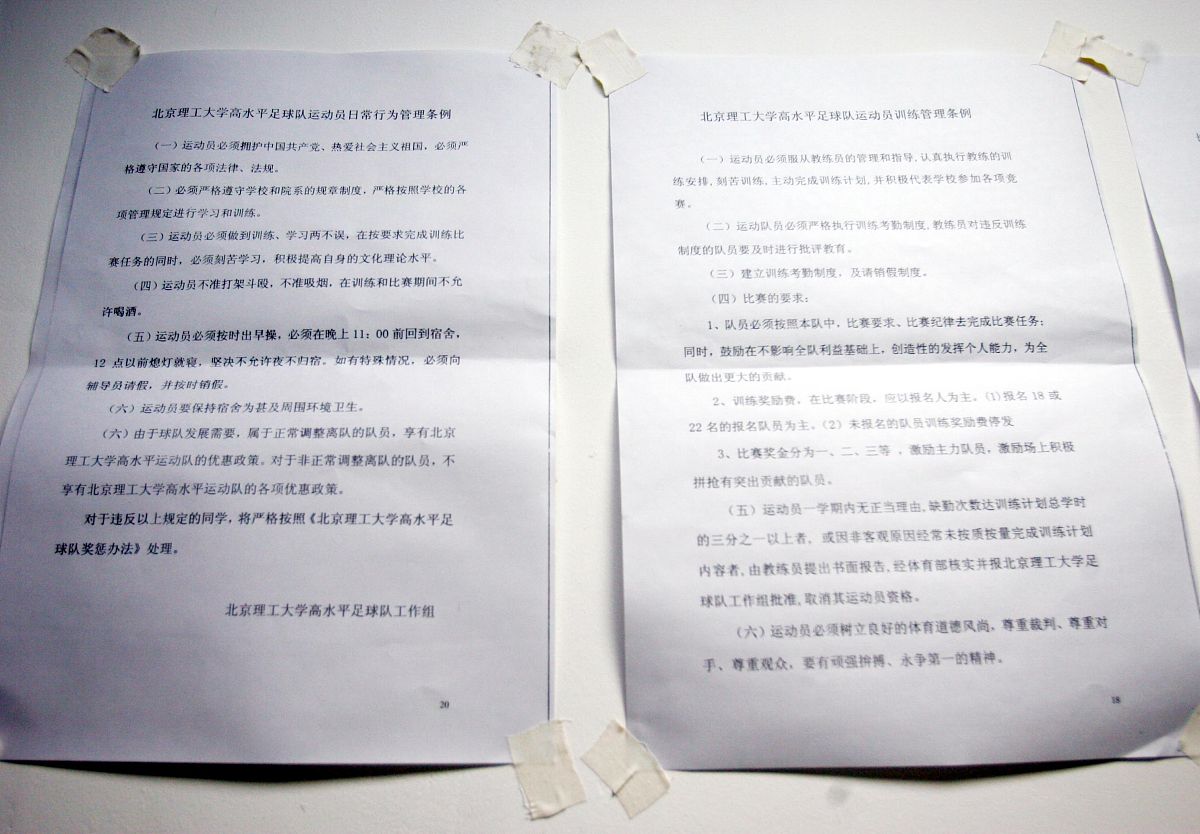 北京理工大学高水平足球队运动员日常行为管理条例
（一）运动员必须拥护中国共产党、热爱社会主义祖国，必须严
格遵守国家的各项法律、法规。
（二）必须严格遵守学校和院系的规章制度，严格按照学校的各
项管理规定进行学习和训练。
（三）运动员必须做到训练、学习两不误，在按要求完成训练比
赛任务的同时，必须刻苦学习，积极提高自身的文化理论水平。
（四）运动员不准打架斗殴，不准吸烟，在训练和比赛期间不允
许喝酒。
（五）运动员必须按时出早操，必须在晚上11：00前回到宿舍，
12 点以前熄灯就寝，坚决不允许夜不归宿。如有特殊情况，必须向
辅导员请假，并按时销假。
（六）运动员要保持宿舍为甚及周围环境卫生。
（六）由于球队发展需要，属于正常调整离队的队员，享有北京
理工大学高水平运动队的优惠政策。对于非正常调整离队的队员，不
享有北京理工大学高水平运动队的各项优惠政策。
对于违反以上规定的同学，将严格按照《北京理工大学高水平足
球队奖惩办法》处理。
北京理工大学高水平足球队工作组
20
北京理工大学高水平足球队运动员训练管理条例
（一）运动员必须服从教练员的管理和指导,认真执行教练的训
练安排,刻苦训练,主动完成训练计划,并积极代表学校参加各项竞
赛。
（二）运动队员必须严格执行训练考勤制度,教练员对违反训练
制度的队员要及时进行批评教育。
（三）建立训练考勤制度，及请销假制度。
（四）比赛的要求：
1、队员必须按照本队中，比赛要求、比赛纪律去完成比赛任务；
同时，鼓励在不影响全队利益基础上，创造性的发挥个人能力，为全
队做出更大的贡献。
2、训练奖励费，在比赛阶段，应以报名人为主。(1)报名 18 或
22 名的报名队员为主。（2）未报名的队员训练奖励费停发
3、比赛奖金分为一、二、三等 ，激励主力队员，激励场上积极
拼抢有突出贡献的队员。
（五）运动员一学期内无正当理由,缺勤次数达训练计划总学时
的三分之一以上者， 或因非客观原因经常未按质按量完成训练计划
内容者,由教练员提出书面报告,经体育部核实并报北京理工大学足
球队工作组批准,取消其运动员资格。
（六）运动员必须树立良好的体育道德风尚，尊重裁判、尊重对
手、尊重观众，要有顽强拚搏、永争第一的精神。
18